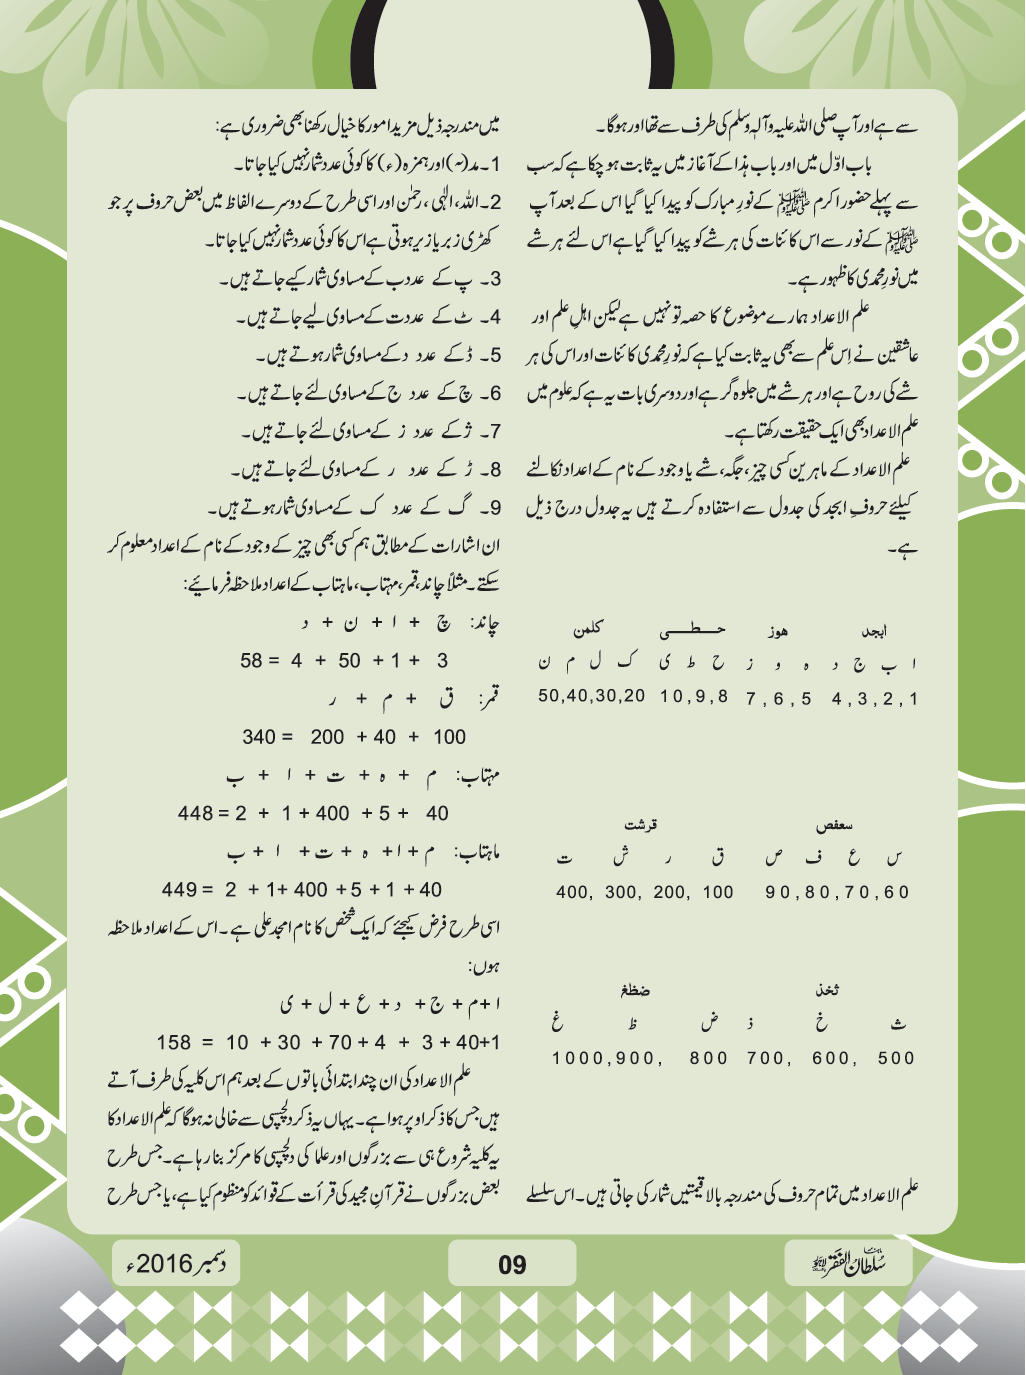 سے ہے اور آپ صلی اللہ علیہ وآلہٖ وسلم کی طرف سے تھا اور ہوگا۔
باب اوّل میں اور باب ہذا کے آغاز میں یہ ثابت ہو چکا ہے کہ سب
سے پہلے حضور اکرم ﷺ کے نورِ مبارک کو پیدا کیا گیا اس کے بعد آپ
ﷺ کے نور سے اس کائنات کی ہر شے کو پیدا کیا گیا ہے اس لئے ہر شے
میں نورِ محمدی کا ظہور ہے۔
علم الاعداد ہمارے موضوع کا حصہ تو نہیں ہے لیکن اہلِ علم اور
عاشقین نے اِس علم سے بھی یہ ثابت کیا ہے کہ نورِ محمدی کائنات اور اس کی ہر
شے کی روح ہے اور ہر شے میں جلوہ گر ہے اور دوسری بات یہ ہے کہ علوم میں
علم الاعداد بھی ایک حقیقت رکھتا ہے۔
علم الاعداد کے ماہرین کسی چیز، جگہ، شے یا وجود کے نام کے اعداد نکالنے
کیلئے حروفِ ابجد کی جدول سے استفادہ کرتے ہیں یہ جدول درج ذیل
ہے۔
ابجد ھوز حـــطـــی کلمن
ا ب ج د ہ و ز ح ط ی ک ل م ن
4,3,2,1 7,6,5 10,9,8 50,40,30,20
سعفص قرشت
س ع ف ص ق ر ش ت
90,80,70,60 400, 300, 200, 100
ثخذ ضظغ
ث خ ذ ض ظ غ
1000,900, 800 700, 600, 500
علم الاعداد میں تمام حروف کی مندرجہ بالا قیمتیں شمار کی جاتی ہیں۔ اس سلسلے
میں مندرجہ ذیل مزید امور کا خیال رکھنا بھی ضروری ہے:
1۔ مد(ٓ) اور ہمزہ (ء) کا کوئی عدد شمار نہیں کیا جاتا۔
2۔ اللہ، الٰہی، رحمٰن اور اسی طرح کے دوسرے الفاظ میں بعض حروف پر جو
کھڑی زبر یا زیر ہوتی ہے اس کا کوئی عدد شمار نہیں کیا جاتا۔
3۔ پ کے عدد ب کے مساوی شمار کیے جاتے ہیں۔
4۔ ٹ کے عدد ت کے مساوی لیے جاتے ہیں۔
5۔ ڈ کے عدد د کے مساوی شمار ہوتے ہیں۔
6۔ چ کے عدد ج کے مساوی لئے جاتے ہیں۔
7۔ ژ کے عدد ز کے مساوی لئے جاتے ہیں۔
8۔ ڑ کے عدد ر کے مساوی لئے جاتے ہیں۔
9۔ گ کے عدد ک کے مساوی شمار ہوتے ہیں۔
ان اشارات کے مطابق ہم کسی بھی چیز کے وجود کے نام کے اعداد معلوم کر
سکتے۔ مثلاً چاند، قمر، مہتاب، ماہتاب کے اعداد ملاحظہ فرمائیے:
چاند: چ + ا + ن + د
58 = 4 + 50 + 1 + 3
قمر: ق + م + ر
340 = 200 + 40 + 100
مہتاب: م + ہ + ت + ا + ب
448 = 2 + 1 + 400 + 5 + 40
ماہتاب: م + ا + ہ + ت + ا + ب
449 = 2 + 1 + 400 + 5 + 1 + 40
اسی طرح فرض کیجئے کہ ایک شخص کا نام امجد علی ہے۔ اس کے اعداد ملاحظہ
ہوں:
ا + م + ج + د + ع + ل + ی
158 = 10 + 30 + 70 + 4 + 3 + 40+1
علم الاعداد کی ان چند ابتدائی باتوں کے بعد ہم اس کلیہ کی طرف آتے
ہیں جس کا ذکر اوپر ہوا ہے۔ یہاں یہ ذکر دلچسپی سے خالی نہ ہوگا کہ علم الاعداد کا
یہ کلیہ شروع ہی سے بزرگوں اور علما کی دلچسپی کا مرکز بنا رہا ہے۔ جس طرح
بعض بزرگوں نے قرآنِ مجید کی قرأت کے قوائد کو منظوم کیا ہے، یا جس طرح
سُلطان الفقر
09
دسمبر 2016ء